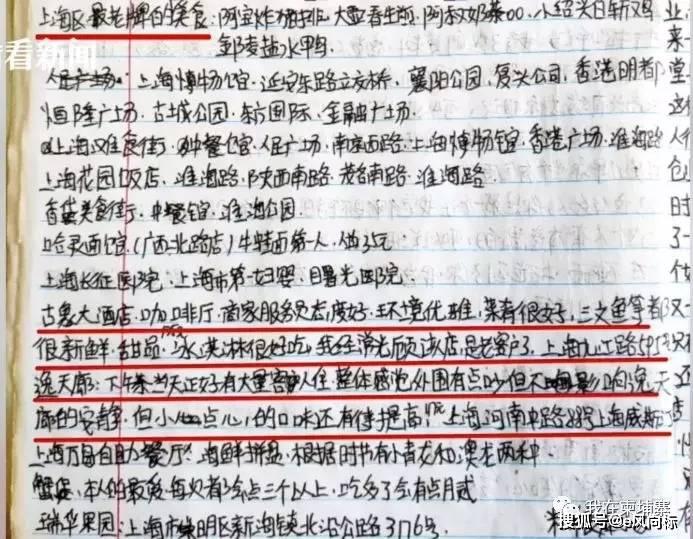 看看新闻
上海区最老牌的美食:阿宝炸猪排.大壶春生煎.阿 奶茶00.小绍兴白斩鸡
盐水鸭
人民广场.上海博物馆.延安东路立交桥.襄阳公园.复兴公司.香港明都
恒隆广场.古城公园.东方国际.金融广场.
上海 食街 餐馆.人民广场.南京西路.上海博物馆.香港广场.淮海路
上海花园饭店.淮海路.陕西南路.茂名南路.淮海路.
美食街.中餐馆.淮海公园.
哈灵面馆.(广西北路店)牛 面第一人.
上海长征医院.上海市第一妇婴.曙光医院.
古象大酒店.咖啡厅.商家服务员态度好.环境优雅.菜肴很好.三文鱼等都
很新鲜.甜品.冰淇淋很好吃.我经常光顾该店.是老客户了.上海九江路595号
逸天廊:下午茶当天正好有大量客人住.整体感觉外围有点吵但不影响逸天
廊的安静.但小点心的口味还有待提高.上海河南中路 号上海威斯
上海万 自助餐厅:海鲜拼盘.根据时节有小青龙和澳龙两种
蟹 .本人的最爱.每次都会点三个以上.吃多了会有点月式
瑞华果园:上海市崇明区新海镇北沿公路3176号.
我在柬埔寨
搜狐号@ 风向标